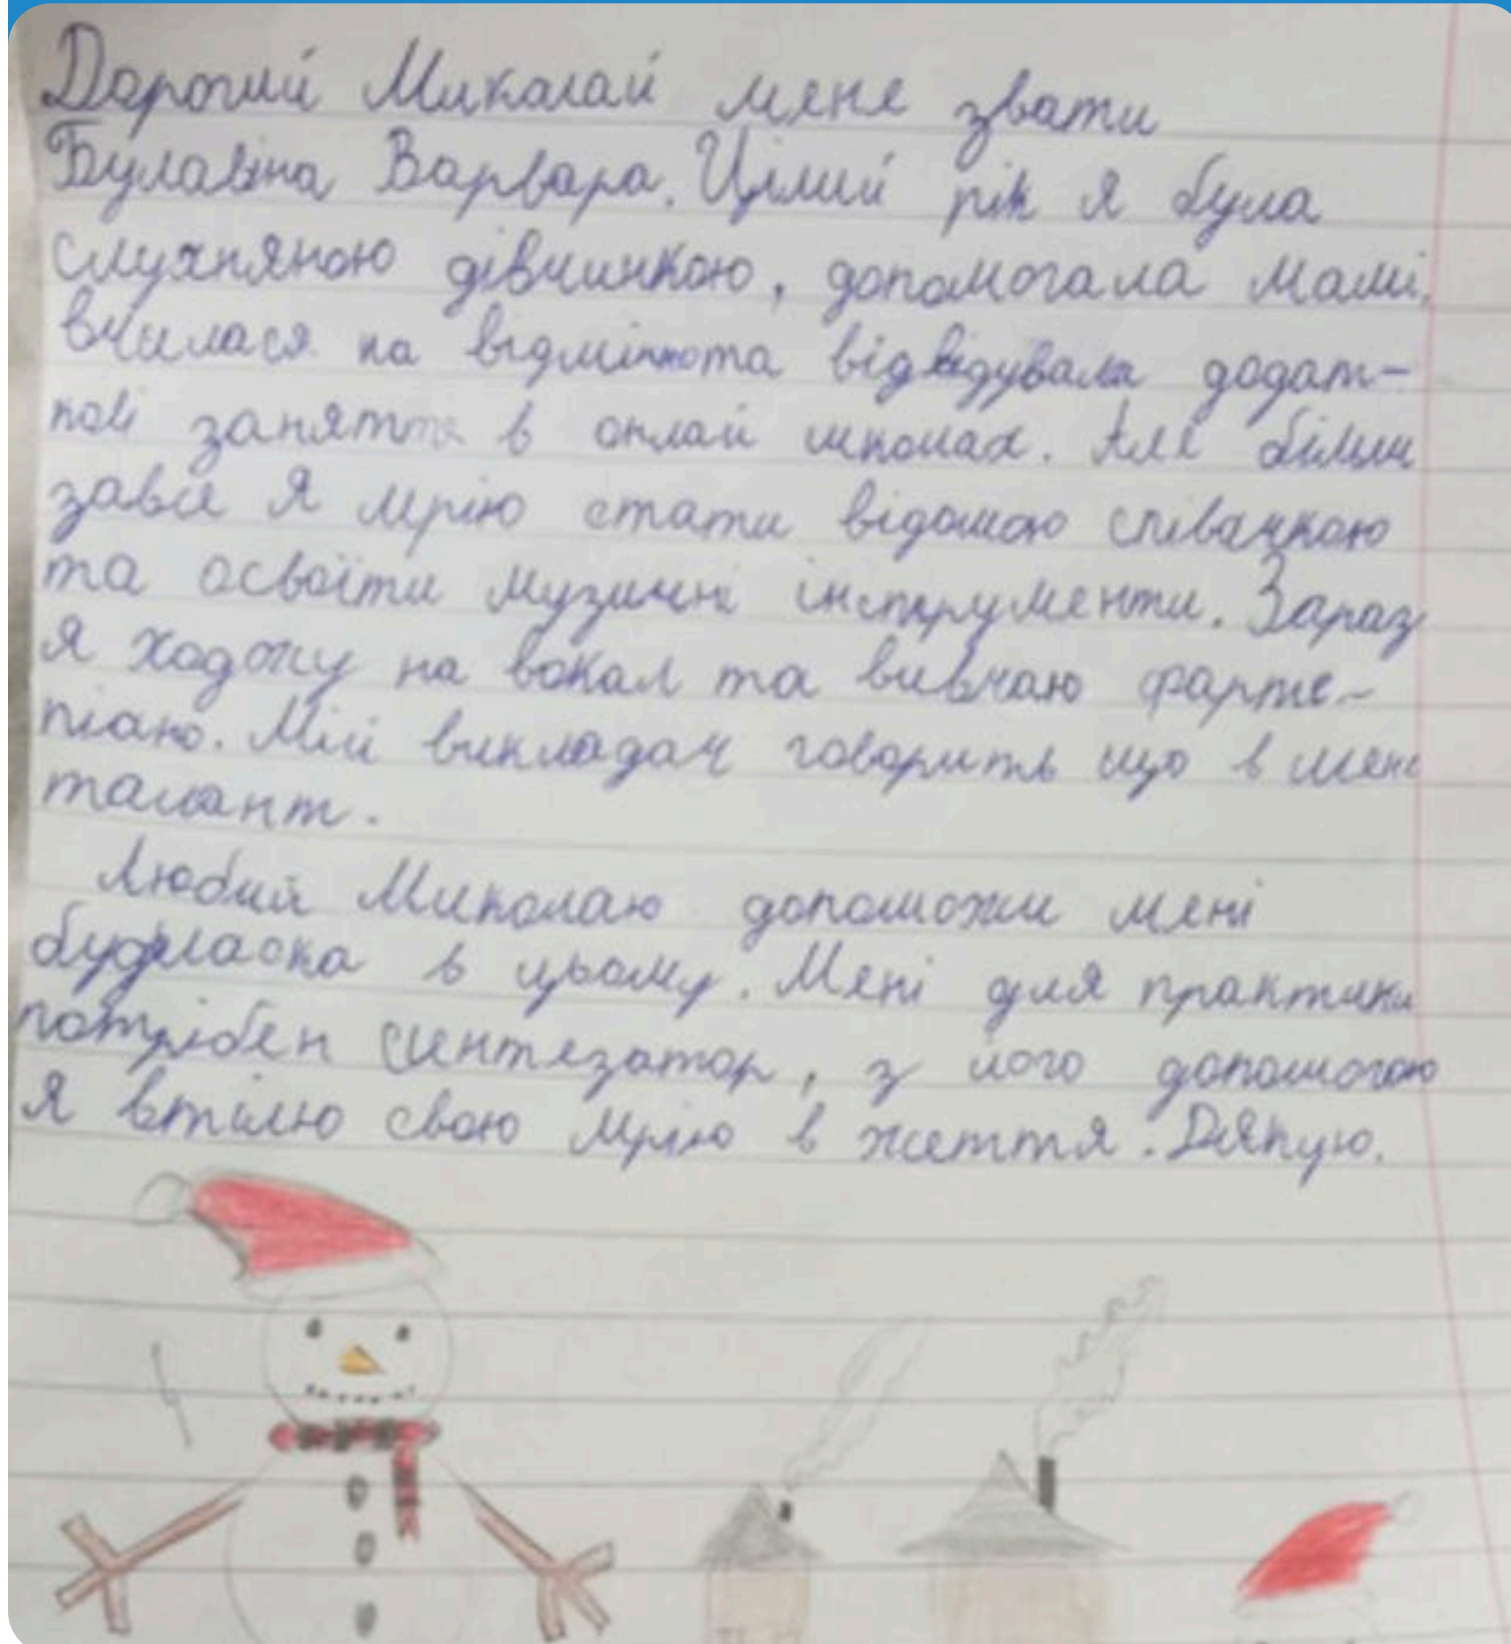 Дорогий Миколай мене звати
Булавіна Варвара. Цілий рік я була
слухняною дівчинкою, допомогала мамі,
вчилася на відмінно та відвідувала додат-
кові заняття в онлай школах. Але більш
завсе я мрію стати відомою співачкою
та освоїти музичні інструменти. Зараз
я ходжу на вокал та вивчаю форте-
піано. Мій викладач говорить що в мене
талант.
Любий Миколаю допоможи мені
будьласка в цьому. Мені для практики
потрібен синтезатор, з його допомогою
я втілю свою мрію в життя. Дякую.